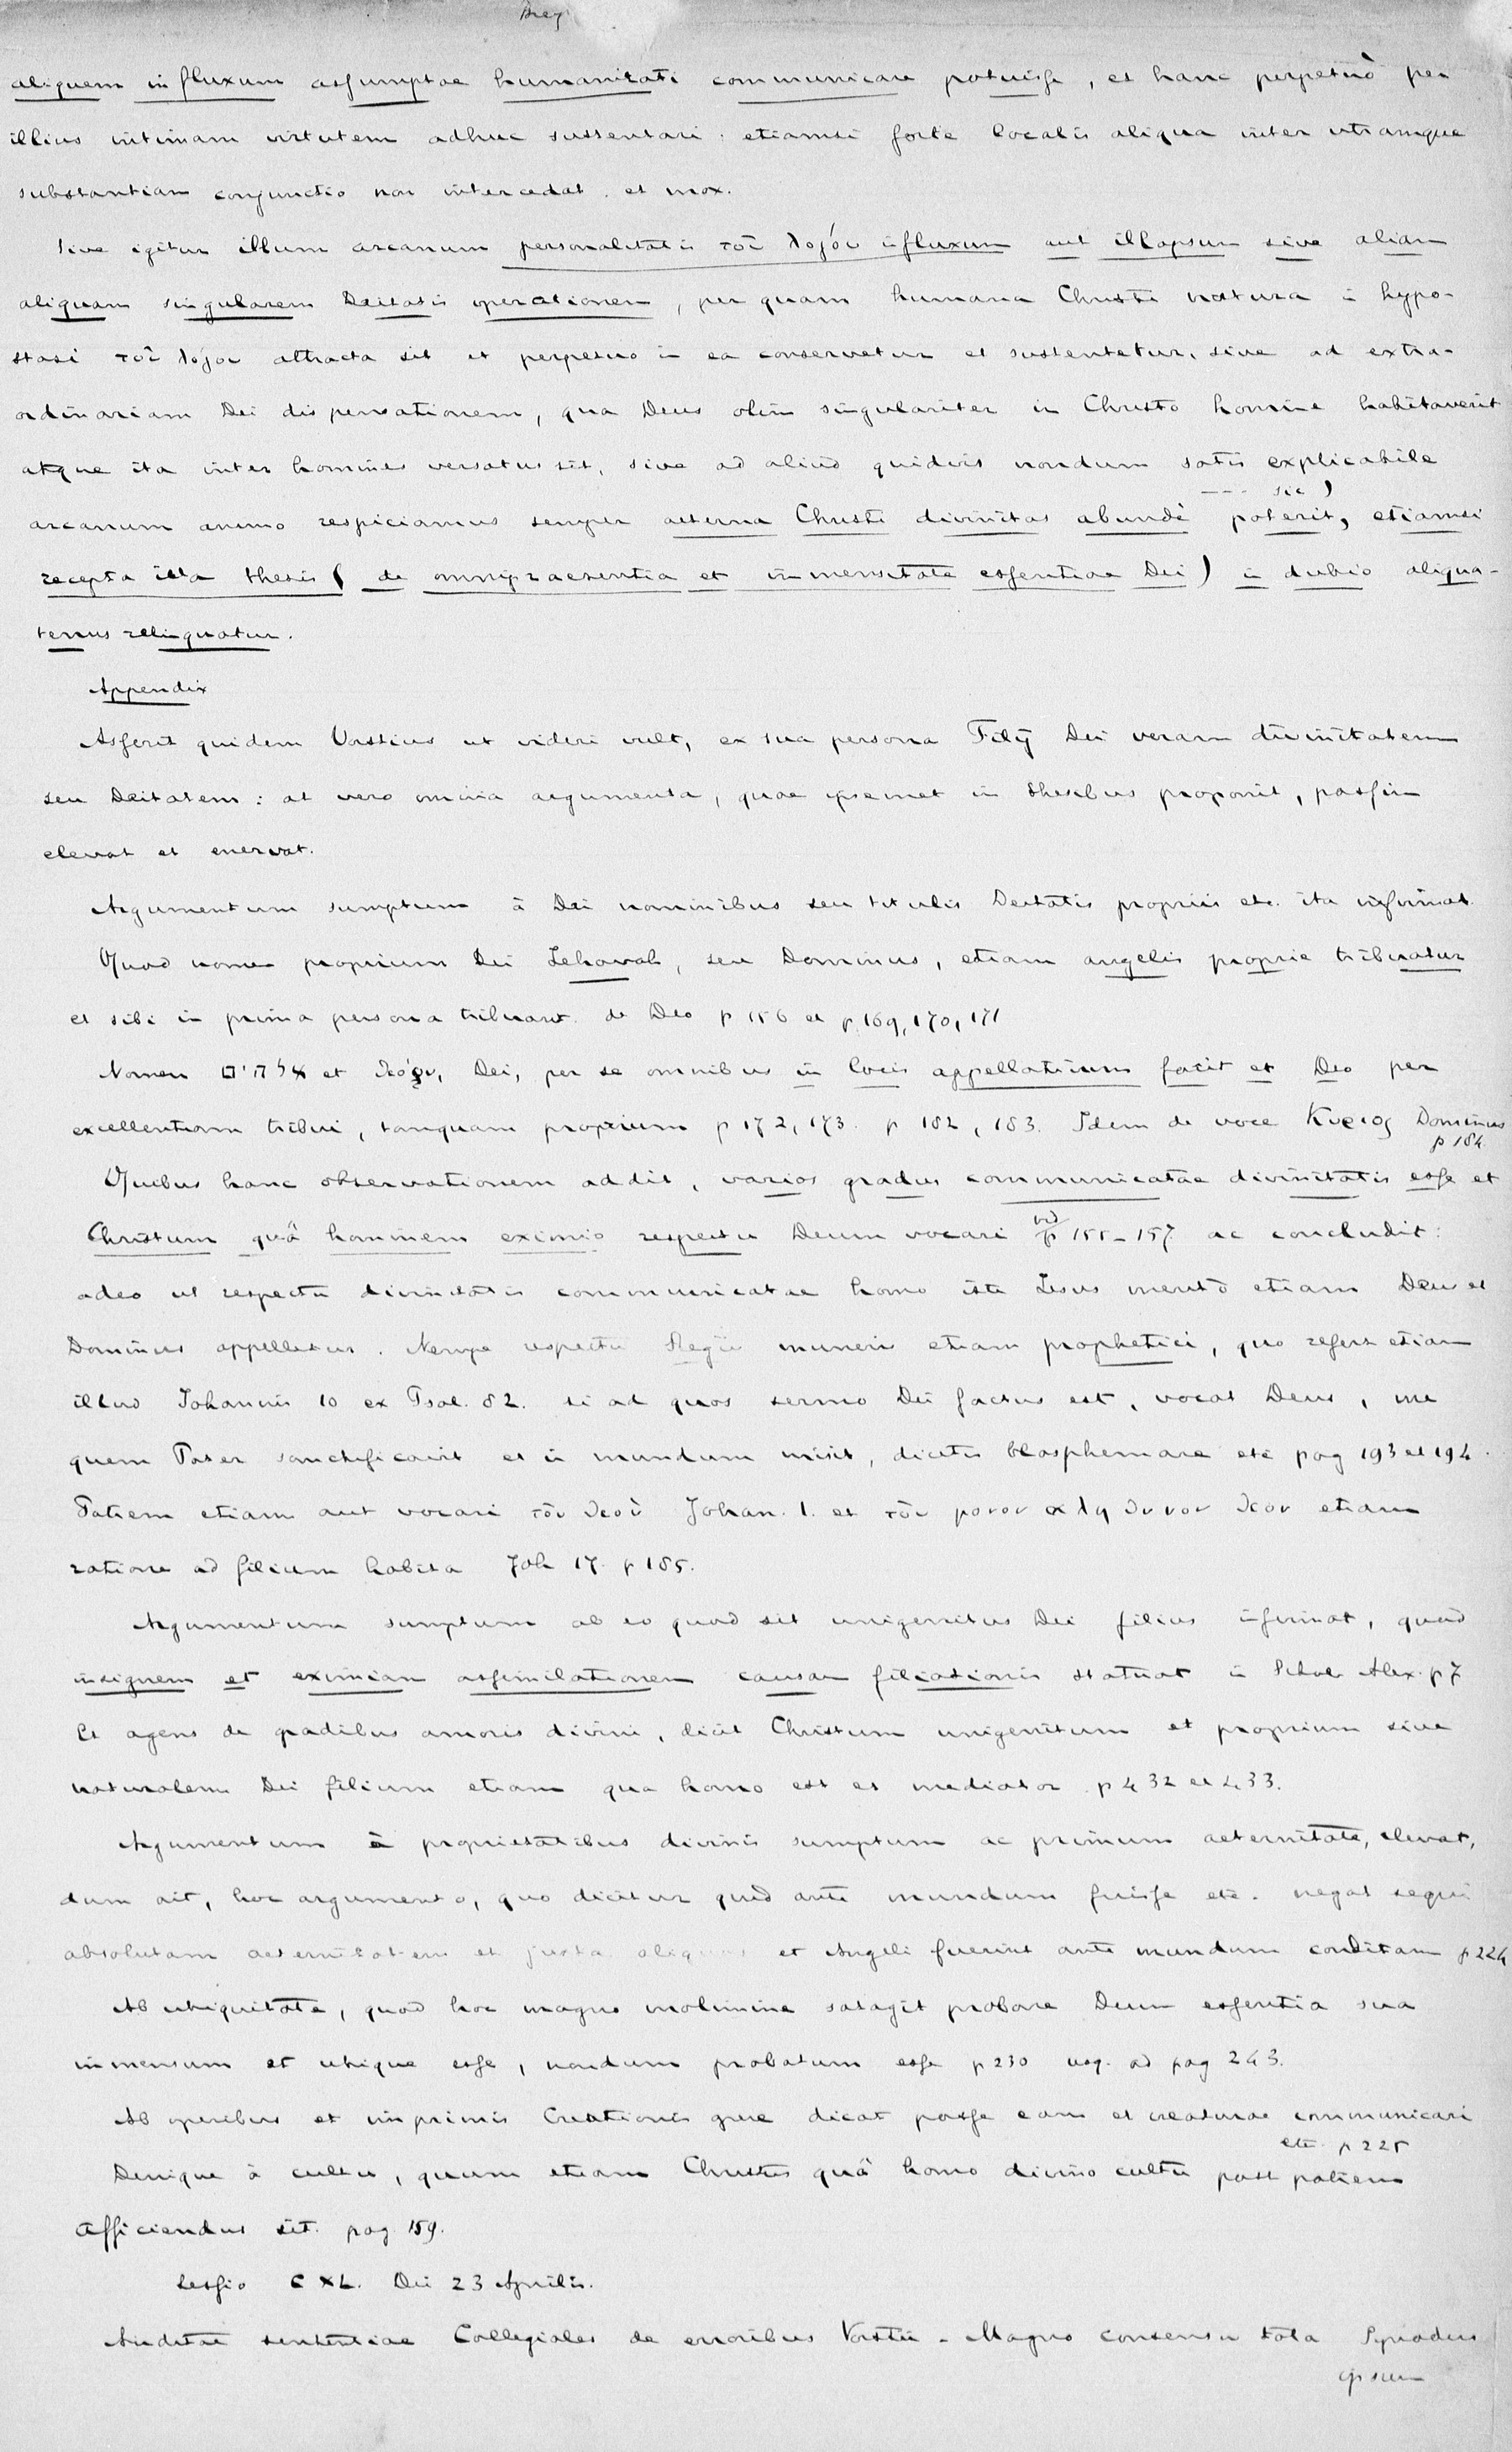 Breg
aliquem influxum assumptae humanitati communicare potuisse, et hanc perpetuò per
illius intimam virtutem adhuc sustentari: etiamsi forte localis aliqua inter utramque
substantiam conjunctio non intercedat. et mox.
Sive igitur illum arcanum personalitatis τοῦ λόγου influxum aut illapsum sive aliam
aliquam singularem Deitatis operationem, per quam humana Christi natura in hypo-
stasi τοῦ λόγου attracta sit et perpetuo in ea conservetur et sustentetur, sive ad extra-
ordinariam Dei dispensationem, qua Deus olim singulariter in Christo homine habitaverit
atque ita inter homines versatus sit, sive ad aliud quidvis nondum satis explicabile
--- sic)
arcanum animo respiciamus semper aeterna Christi divinitas abundè poterit, etiamsi
recepta illa thesis (de omnipraesentia et immensitate essentiae Dei) in dubio aliqua-
tenus relinquatur.
Appendix
Asserit quidem Vorstius ut videri vult, ex sua persona Filij Dei veram divinitatem
seu Deitatem: at vero omnia argumenta, quae ipsemet in thesibus proponit, passim
elevat et enervat.
Argumentum sumptum à Dei nominibus seu titulis Deitatis propriis etc. ita infirmat.
Quod nomen proprium Dei Jehovah, seu Dominus, etiam angelis proprie tribuatur
et sibi in prima persona tribuant. de Deo p 156 et p. 169, 170, 171
Nomen אלהים et θεόν, Dei, per se omnibus in locis appellativum facit et Deo per
excellentiam tribui, tanquam proprium p 172, 173. p 182, 183. Idem de voce Κυριος Dominus
p 184.
Quibus hanc observationem addit, varios gradus communicatae divinitatis esse et
Christum quâ hominem eximio respectu Deum vocari vid p 155-157 ac concludit:
adeo ut respectu divinitatis communicatae homo iste Jesus meritò etiam Deus et
Dominus appelletur. Nempe respectu Regii muneris etiam prophetici, quo refert etiam
illud Johannis 10 ex Psal. 82. si ad quos sermo Dei factus est, vocat Deus, me
quem Pater sanctificavit et in mundum misit, dicitis blasphemare etc pag 193 et 194.
Patrem etiam aut vocari τὸν θεοὺ Johan. 1. et τὸν μονον αληθινον θεον etiam
ratione ad filium habita Joh 17. p 185.
Argumentum sumptum ab eo quod sit unigenitus Dei filius infirmat, quod
insignem et eximiam assimilationem causam filiationis statuat in Schol. Alex. p 7
Et agens de gradibus amoris divini, dicit Christum unigenitum et proprium sive
naturalem Dei filium etiam qua homo est et mediator p 432 et 433.
Argumentum à proprietatibus divinis sumptum ac primum aeternitate, elevat,
dum ait, hoc argumento, quo dicitur quod ante mundum fuisse etc. negat sequi
absolutam aeternitatem et juxta aliquos et Angeli fuerint ante mundum conditam p 224
Ab ubiquitate, quod hoc magno molimine satagit probare Deum essentia sua
immensum et ubique esse, nondum probatum esse p 230 usq. ad pag 243.
Ab operibus et imprimis Creationis quae dicat posse eam et creaturae communicari
etc. p 225
Denique à cultu, quum etiam Christus quâ homo divino cultu post patrem
Afficiendus sit. pag. 159.
Sessio CXL. Dei 23 Aprilis.
Auditae sententiae Collegiales de erroribus Vorstii - Magno consensu tota Synodus
ipsum